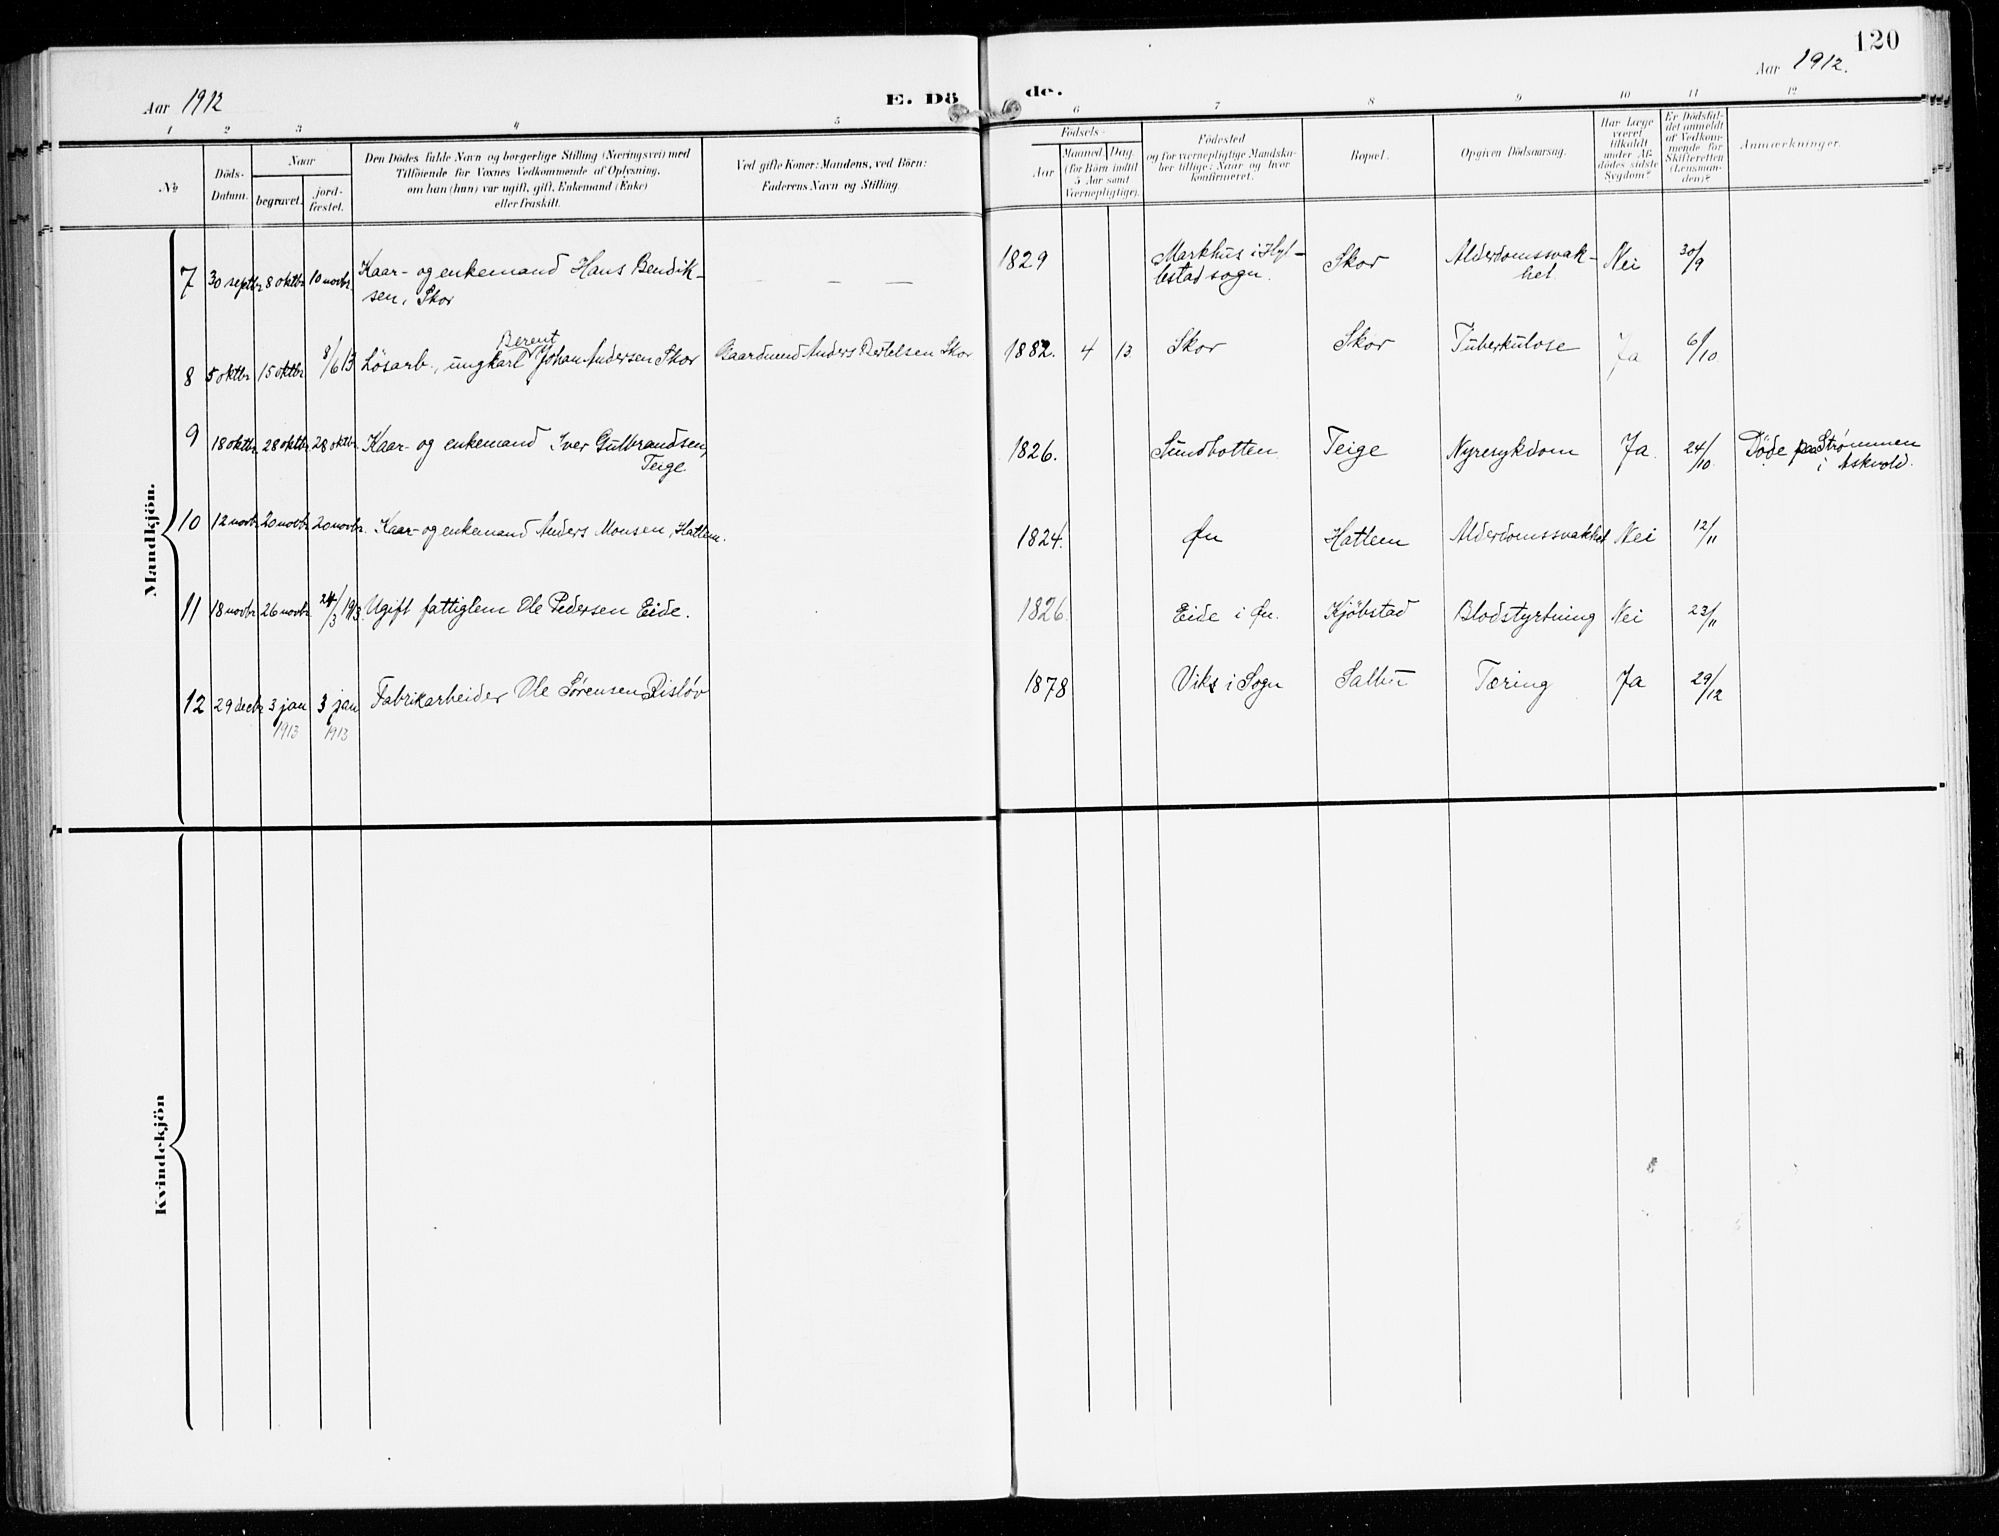 120
Aar 1912
E. Dö de.
Aar 1912.
1 2 3 4 5 6 7 8 9 10 11 12
No
Döds-
Datum.
Naar
begravet.
jord-
fæstet.
Den Dödes fulde Navn og borgerlige Stilling (Næringsvei) med
Tilföiende for Voxnes Vedkommende af Oplysning,
om han (hun) var ugift, gift, Enkemand (Enke)
eller fraskilt.
Ved gifte Koner: Mandens, ved Börn:
Faderens Navn og Stilling.
Födsels-
Aar
Maaned Dag
(for Börn indtil
5 Aar samt
Værnepligtige).
Födested
og for værnepligtige Mandska-
ber tillige: Naar og hvor
konfirmeret.
Bopæl.
Opgiven Dödsaarsag.
Har Læge
været
tilkaldt
under Af-
dödes sidste
Sygdom?
Er Dödsfal-
det anmeldt
af Vedkom-
mende for
Skifteretten
(Lensman-
den)?
Anmærkninger.
Mandkjön.
7 30 septbr 8 oktbr 10 novbr. Kaar- og enkemand Hans Bendik-
sen, Skor
— — —
1829 Markhus i Hyl-
lestad sogn. Skor Alderdomssvak-
het. Nei 30/9
8 5 oktbr 15 oktbr 8/6 13 Lösarb., ungkarl Berent Johan Andersen Skor Gaardmand Anders Bertelsen Skor 1882. 4 13 Skor Skor Tuberkulose Ja 6/10
9 18 oktbr 28 oktbr 28 oktbr. Kaar- og enkemand Iver Gulbrandsen,
Teige
1826. Sundbotten Teige Nyresykdom Ja. 24/10. Døde paa Strømmen
i Askvold.
10 12 novbr. 20 novbr 20 novbr. Kaar- og enkemand Anders Monsen, Hatlem. 1824. Øn Hatlem Alderdomssvakhet Nei 12/11
11 18 novbr 26 novbr. 24/3 1913. Ugift fattiglem Ole Pedersen Eide. 1826. Eide i Øn. Kjöbstad Blodstyrtning Nei 23/11
12 29 decbr 3 jan
1913 3 jan
1913 Fabrikarbeider Ole Sørensen Risløv 1878 Viks i Sogn Salbu Tæring Ja 29/12
Kvindekjön